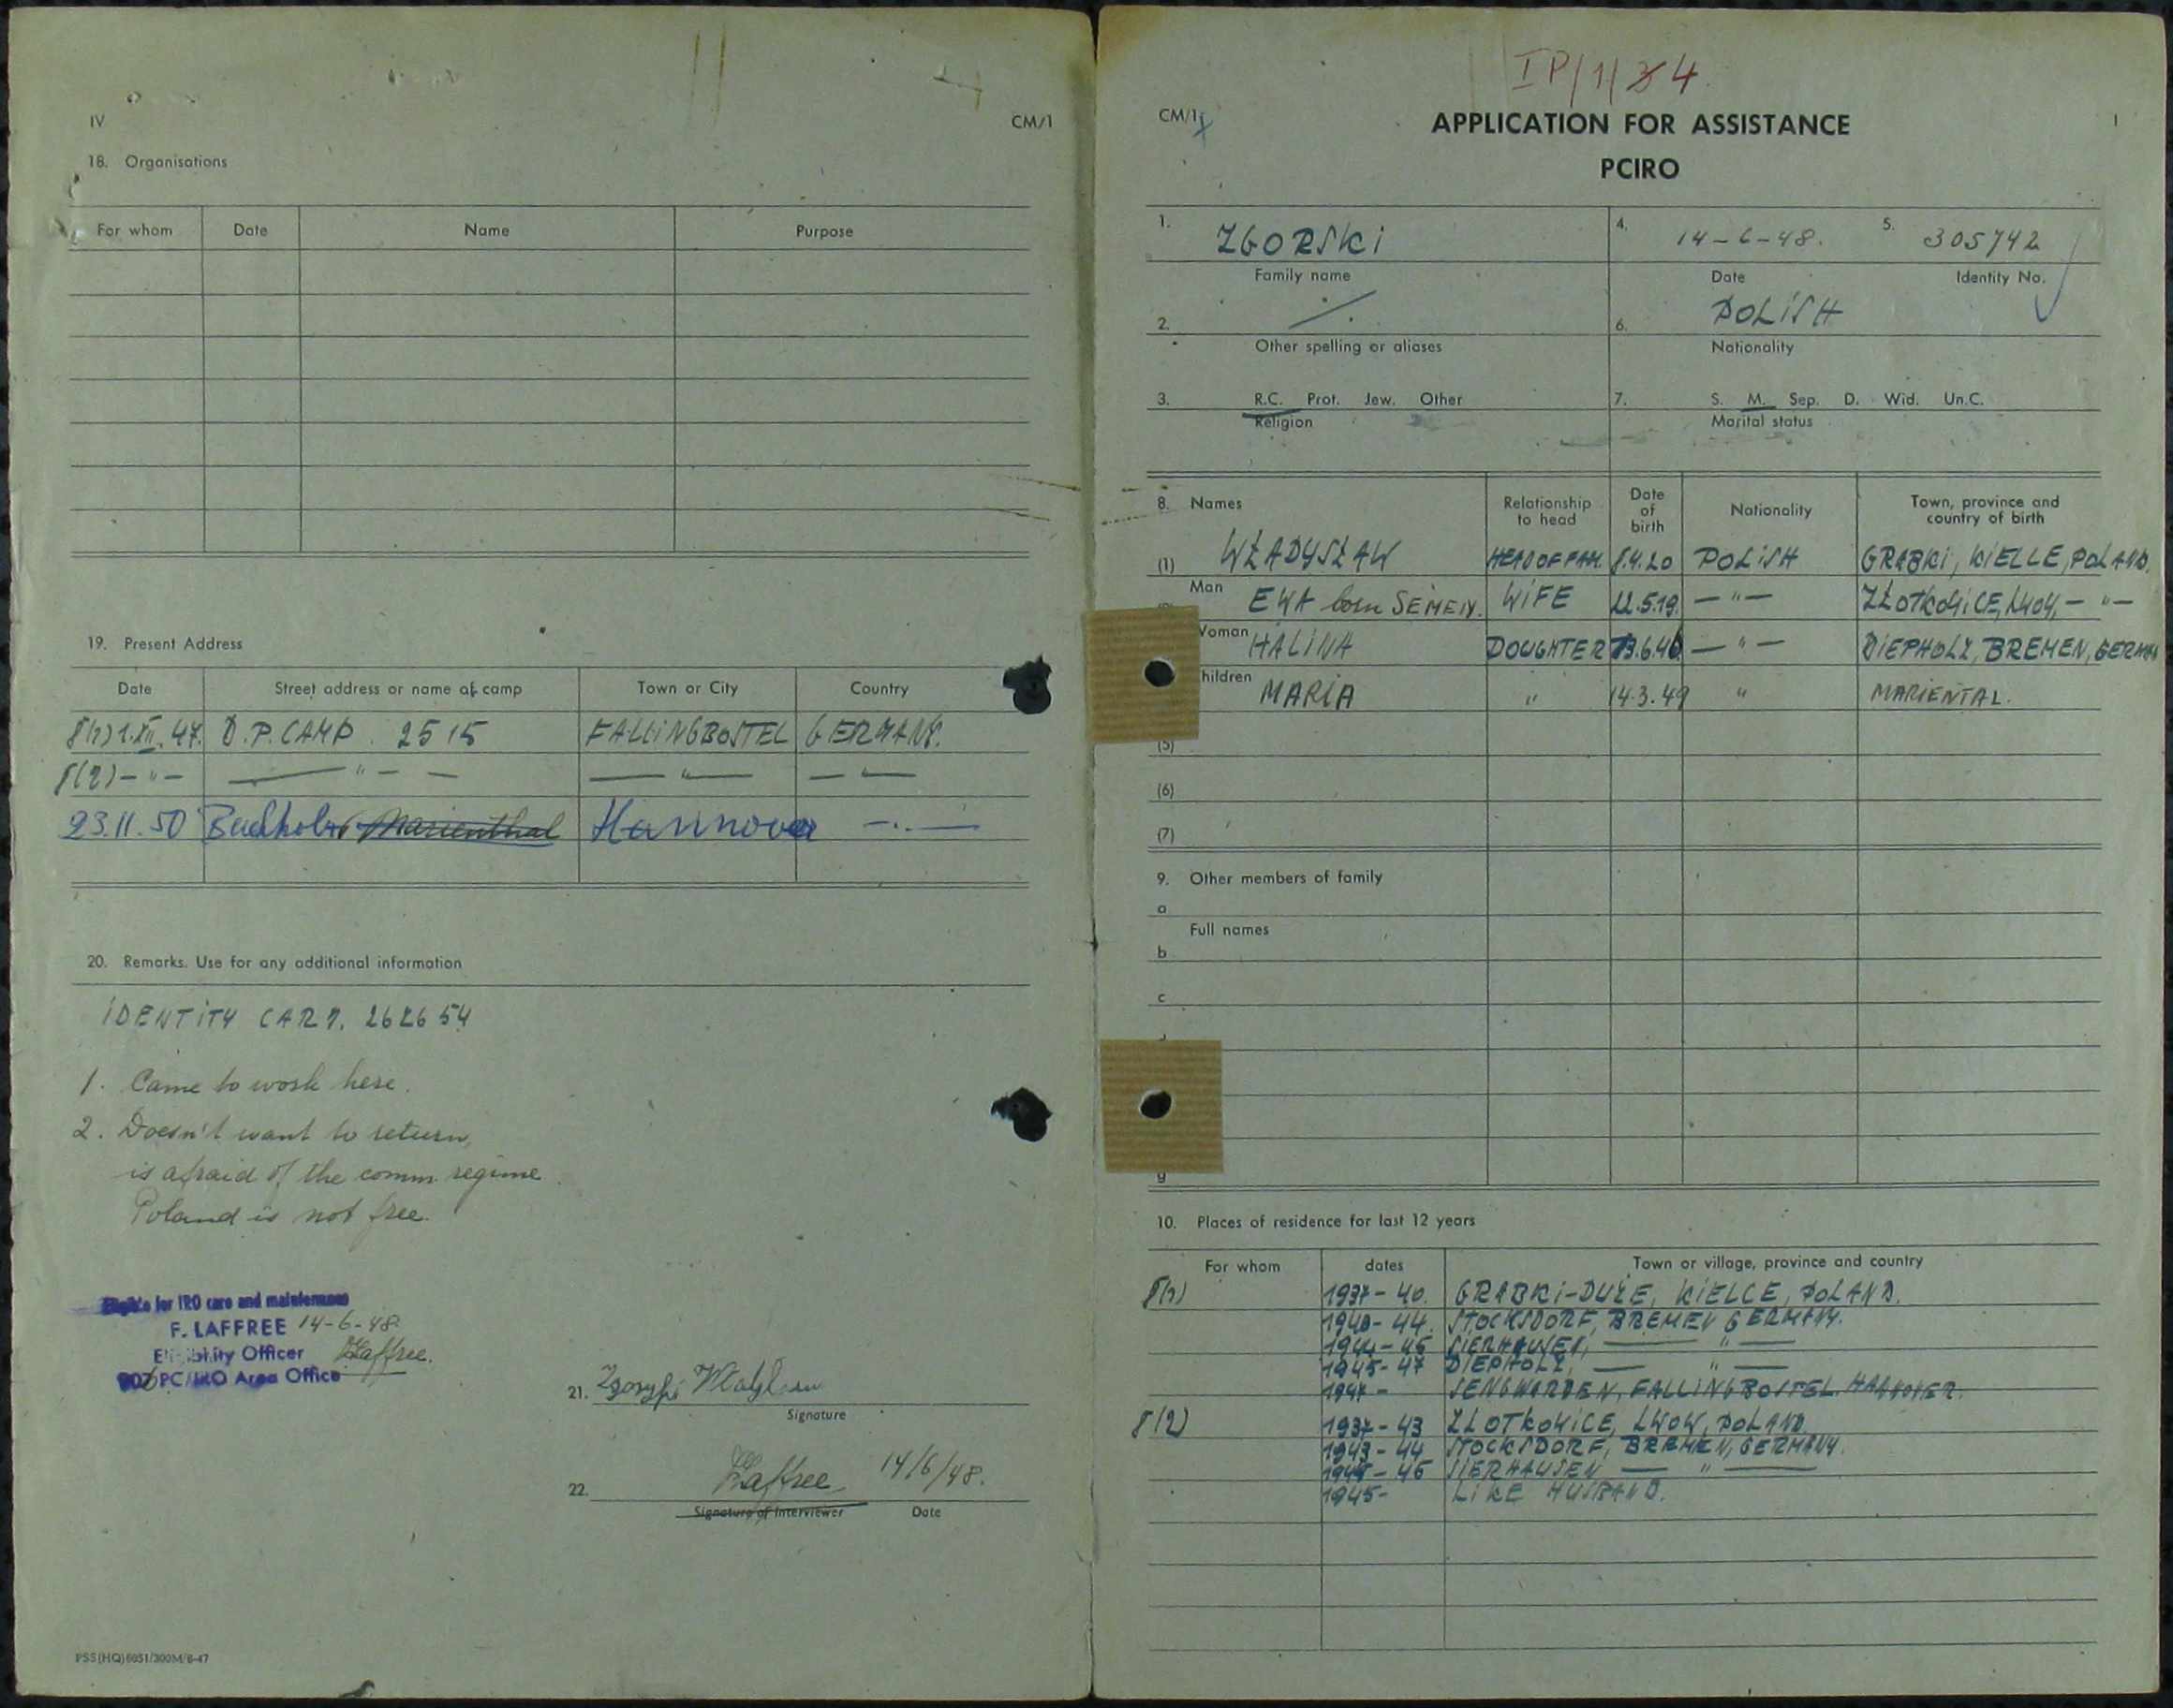 IV
CM/1
18. Organisations
For whom Date Name Purpose
19. Present Address
Date Street address or name of camp Town or City Country
8(1) 1.XII.47. D.P. CAMP 2515 FALLINGBOSTEL GERMANY.
8(2) — " — — " — — — " — — " —
23.11.50 Buchholz Marienthal Hannover —.—
20. Remarks. Use for any additional information
IDENTITY CARD. 262654
1. Came to work here.
2. Doesn't want to return,
is afraid of the comm. regime.
Poland is not free.
Eligible for IRO care and maintenance
F. LAFFREE 14-6-48.
Eligibility Officer Laffree.
PC/IRO Area Office
21. Zgorski
Signature
22. Laffree 14/6/48.
Signature of Interviewer Date
PSS(HQ)6051/300M/6-47
IP/1/34.
CM/1
APPLICATION FOR ASSISTANCE
I
PCIRO
1. ZGORSKI 4. 14-6-48. 5. 305742
Family name Date Identity No.
2. ·/. 6. POLISH
Other spelling or aliases Nationality
3. R.C. Prot. Jew. Other 7. S. M. Sep. D. Wid. Un.C.
Religion Marital status
8. Names Relationship to head Date of birth Nationality Town, province and country of birth
(1) WŁADYSŁAW HEAD OF FAM. 8.4.20 POLISH GRABKI, KIELLE, POLAND.
Man
EWA born SEMEN. WIFE 22.5.19. — " — ZŁOTKOWICE, LWOW, — " —
Woman
HALINA DOUGHTER 13.6.46 — " — DIEPHOLZ, BREMEN, GERMAN
hildren
MARIA " 14.3.49 " MARIENTAL.
(5)
(6)
(7)
9. Other members of family
a
Full names
b
c
g
10. Places of residence for last 12 years
For whom dates Town or village, province and country
8(1) 1937-40. GRABKI-DUŻE, KIELCE, POLAND.
1940-44. STOCKSDORF, BREMEN GERMANY.
1944-45 SIERHAUSEN, — " —
1945-47 DIEPHOLZ, — " —
1947- SENGWARDEN, FALLINGBOSTEL. HANNOVER.
8(2) 1937-43 ZŁOTKOWICE, LWOW, POLAND
1943-44 STOCKSDORF, BREMEN, GERMANY.
1944-45 SIERHAUSEN — " —
1945- LIKE HUSBAND.